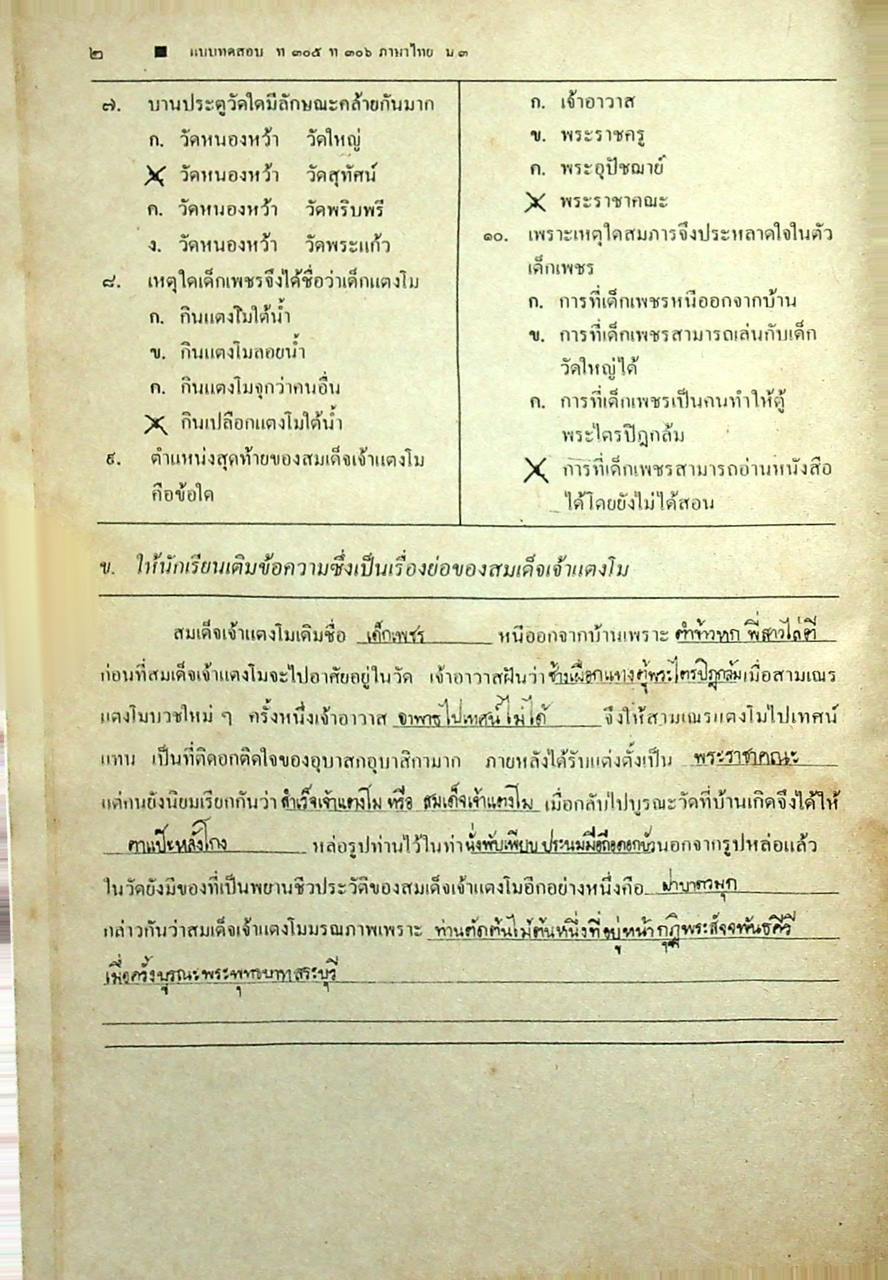 ๒ ■ แบบทดสอบ ท ๓๐๕ ท ๓๐๖ ภาษาไทย ม.๓
๗. บานประตูวัดใดมีลักษณะคล้ายกันมาก
ก. วัดหนองหว้า วัดใหญ่
วัดหนองหว้า วัดสุทัศน์
ค. วัดหนองหว้า วัดพริบพรี
ง. วัดหนองหว้า วัดพระแก้ว
๘. เหตุใดเด็กเพชรจึงได้ชื่อว่าเด็กแตงโม
ก. กินแตงโมใต้น้ำ
ข. กินแตงโมลอยน้ำ
ค. กินแตงโมจุกว่าคนอื่น
กินเปลือกแตงโมใต้น้ำ
๙. ตำแหน่งสุดท้ายของสมเด็จเจ้าแตงโม
คือข้อใด
ก. เจ้าอาวาส
ข. พระราชครู
ค. พระอุปัชฌาย์
พระราชาคณะ
๑๐. เพราะเหตุใดสมภารจึงประหลาดใจในตัว
เด็กเพชร
ก. การที่เด็กเพชรหนีออกจากบ้าน
ข. การที่เด็กเพชรสามารถเล่นกับเด็ก
วัดใหญ่ได้
ค. การที่เด็กเพชรเป็นคนทำให้ตู้
พระไตรปิฎกล้ม
การที่เด็กเพชรสามารถอ่านหนังสือ
ได้โดยยังไม่ได้สอน
ข. ให้นักเรียนเติมข้อความซึ่งเป็นเรื่องย่อของสมเด็จเจ้าแตงโม
สมเด็จเจ้าแตงโมเดิมชื่อ เด็กเพชร หนีออกจากบ้านเพราะ ตำข้าวหก พี่สาวไล่ตี
ก่อนที่สมเด็จเจ้าแตงโมจะไปอาศัยอยู่ในวัด เจ้าอาวาสฝันว่า ช้างเผือกแทงตู้พระไตรปิฎกล้ม เมื่อสามเณร
แตงโมบวชใหม่ ๆ ครั้งหนึ่งเจ้าอาวาส อาพาธไปเทศน์ไม่ได้ จึงให้สามเณรแตงโมไปเทศน์
แทน เป็นที่ติดอกติดใจของอุบาสกอุบาสิกามาก ภายหลังได้รับแต่งตั้งเป็น พระราชาคณะ
แต่คนยังนิยมเรียกกันว่า สำเร็จเจ้าแตงโม หรือ สมเด็จเจ้าแตงโม เมื่อกลับไปบูรณะวัดที่บ้านเกิดจึงได้ให้
ตาแป๊ะหลังโกง หล่อรูปท่านไว้ในท่า นั่งพับเพียบ ประนมมือถือดอกบัว นอกจากรูปหล่อแล้ว
ในวัดยังมีของที่เป็นพยานชีวประวัติของสมเด็จเจ้าแตงโมอีกอย่างหนึ่งคือ ฝาบาตรมุก
กล่าวกันว่าสมเด็จเจ้าแตงโมมรณภาพเพราะ ท่านตัดต้นไม้ต้นหนึ่งที่อยู่หน้ากุฏิพระ
เมื่อครั้งบูรณะพระพุทธบาทสระบุรี